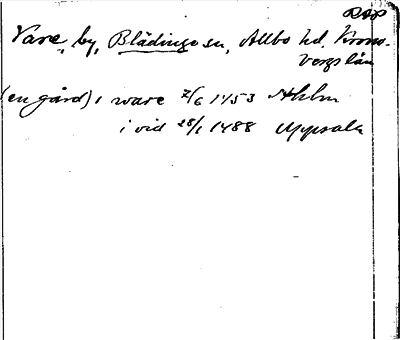 RAP
Vare, by, Blädinge sn, Allbo hd, Krono-
bergs län
(en gård) i ware 7/6 1453 Sthlm
i vid 28/1 1488 Uppsala